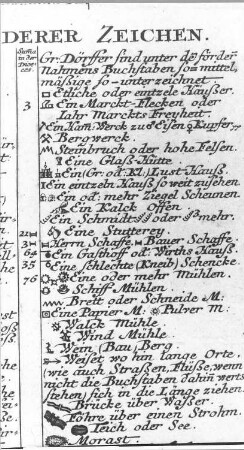 DERER ZEICHEN.
Gr. Dörffer sind unter de förder
Nahmens Buchstaben so mittel,
mäßige so unterzeichnet
Etliche oder eintzele Häußer.
3 Ein Marckt-Flecken oder
Jahr Marckts Freyheit.
Ein Ham. Werck zu Eisen Kupfer
Bergwerck.
Steinbruch oder hohe Felsen.
Eine Glaß-Hütte.
Ein (Gr. od. Kl.) Lust-Hauß.
Ein eintzeln Hauß so weit zu sehen
Ein od. mehr Ziegel Scheunen.
Ein Kalck Offen
Ein Schmidt oder mehr.
Eine Stutterey
Herrn Schaffe. Bauer Schaffe.
64 Ein Gasthoff od. Wirths Hauß.
35 Eine schlechte (Kneib) Schencke.
76 Eine oder mehr Mühlen.
Schiff Mühlen.
Brett oder Schneide M:
Eine Papier M: Pulver M:
Walck Mühle.
Wind Mühle.
Wein (Bau) Berg.
Weiset wo hin lange Orte
(wie auch Straßen, Flüße, wenn
nicht die Buchstaben dahin werts
stehen) sich in die Länge ziehen.
Brücke über Waßer.
Föhre über einen Strohm.
Teich oder See.
Morast.